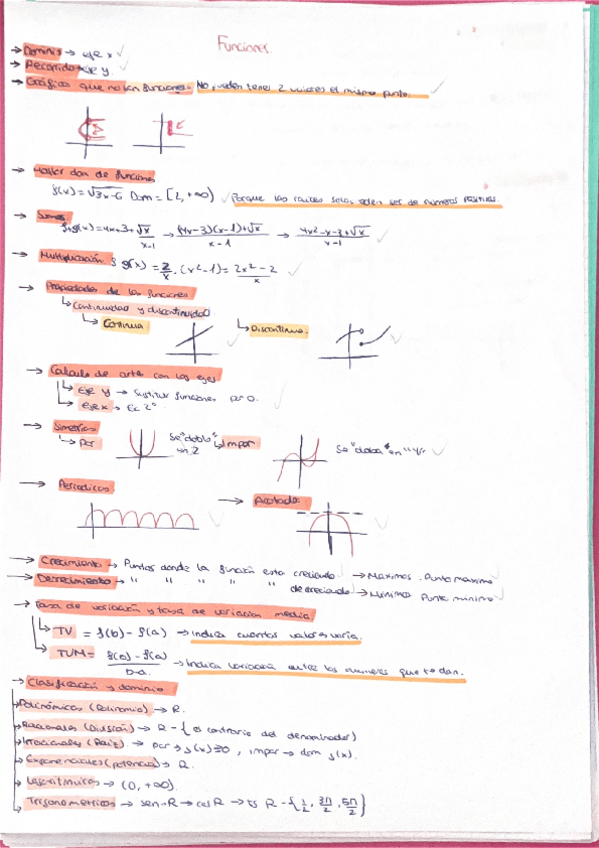 Funciones.
→ Dominio → eje x ✓
→ Recorrido → eje y. ✓
→ Gráficas que no son funciones. No pueden tener 2 valores el mismo punto. ✓
→ Hallar dom de funciones
f(x) = √3x-6 Dom = [2, +∞) ✓ Porque las raíces solo pueden ser de números positivos.
→ Suma
f+g(x) = 4x-3 + √x/x-1 → (4x-3)(x-1)+√x/x-1 → 4x²-x-3+√x/x-1 ✓
→ Multiplicación f·g(x) = 2/x · (x²-1) = 2x²-2/x ✓
→ Propiedades de las funciones
↳ Continuidad y discontinuidad
↳ Continua ↳ Discontinua.
→ Calculo de corte con los ejes
↳ Eje y → Sustituir funciones por 0.
↳ eje x → Ec 2º
→ Simetrías
↳ Par Se "dobla" en 2 ↳ Impar Se "dobla" en "4" ✓
→ Periodicas → Acotada
→ Crecimiento → Puntos donde la función esta creciendo → Maximos. Punto maximo
→ Decrecimiento → " " " " " decreciendo → Minimos Punto minimo ✓
→ Tasa de variación y tasa de variación media
↳ TV = f(b) - f(a) → Indica cuantos valores varia.
↳ TVM = f(b) - f(a)/b-a → Indica variación entre los numeros que te dan.
→ Clasificación y dominio
→ Polinómicas (Polinomio) → R.
→ Racionales (División) → R - { lo contrario del denominador}
→ Irracionales (Raíz) → par → f(x) ≥ 0, impar → dom f(x).
→ Exponenciales (potencia) → R.
→ Logaritmicas → (0, +∞).
→ Trigonometricas → sen → R → cos R → tg R - {1/2, 3π/2, 5π/2}